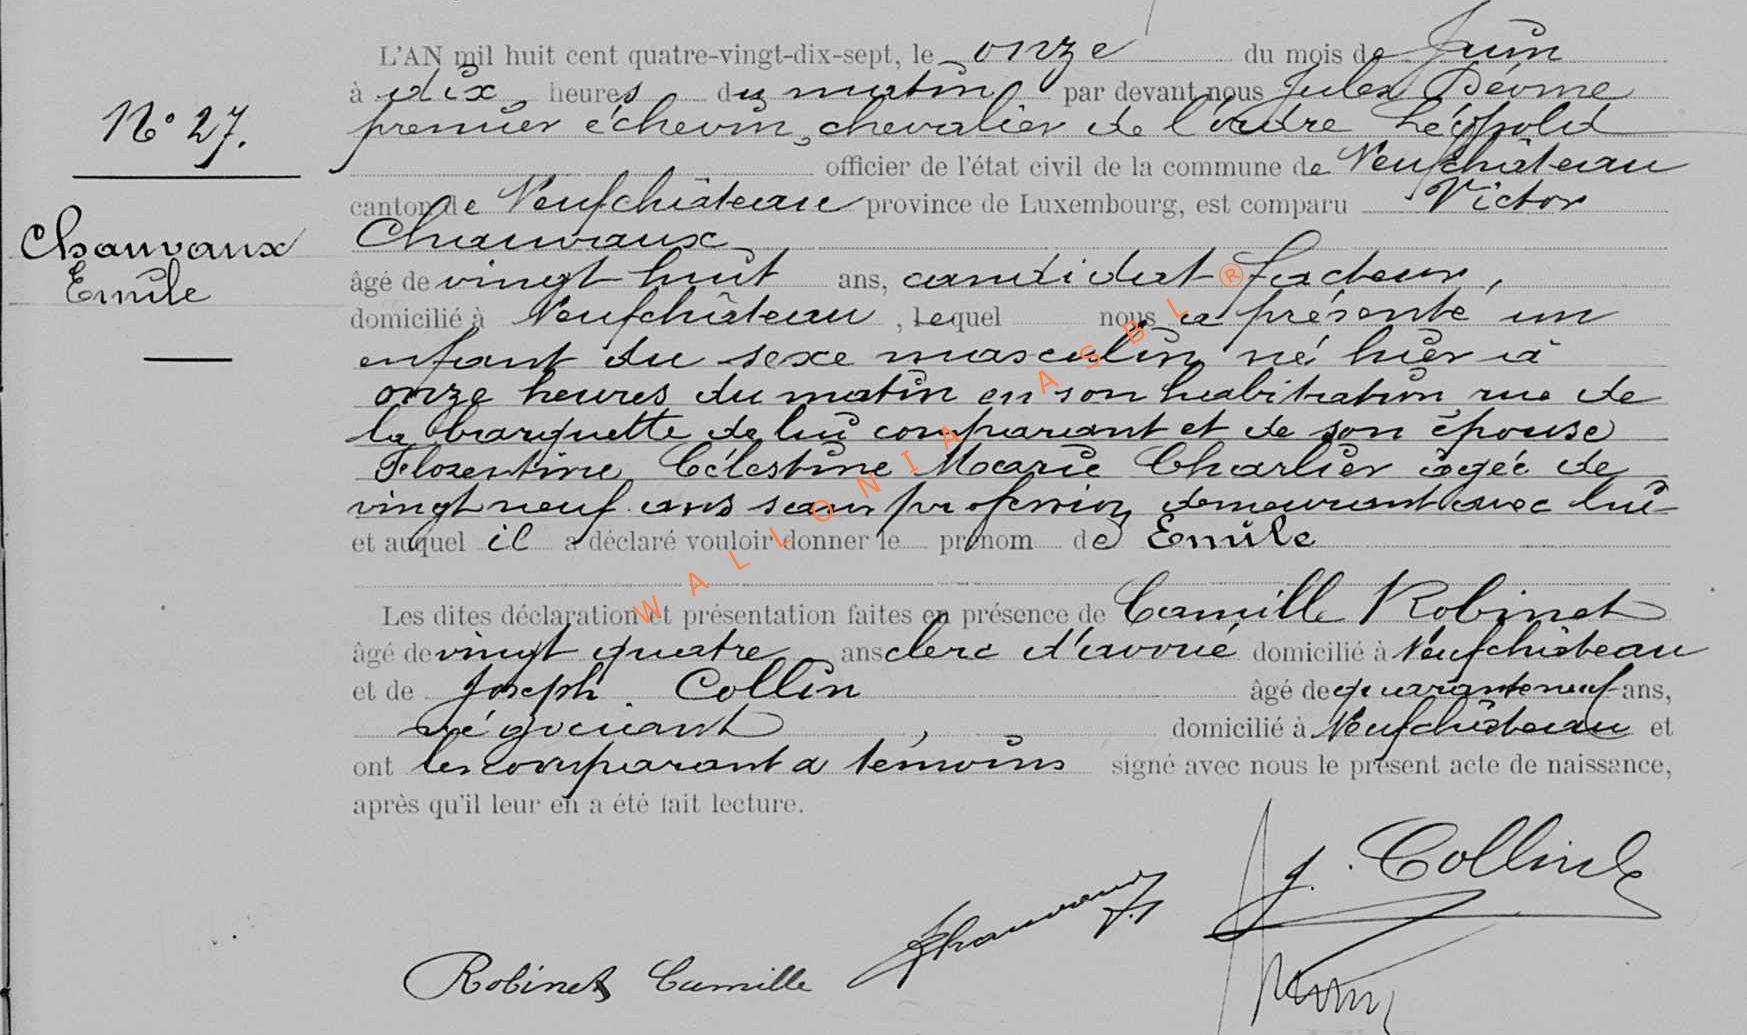 N° 27.
Chauvaux
Emile
L'AN mil huit cent quatre-vingt-dix-sept, le onze du mois de Juin
à dix heures du matin par devant nous Jules
premier échevin, chevalier de l'ordre Léopold
officier de l'état civil de la commune de Neufchâteau
canton de Neufchâteau province de Luxembourg, est comparu Victor
Chauvaux
âgé de vingt huit ans, candidat facteur,
domicilié à Neufchâteau, lequel nous a présenté un
enfant du sexe masculin né hier à
onze heures du matin en son habitation rue de
la barquette de lui comparant et de son épouse
Florentine Célestine Marie Charlier âgée de
vingt neuf ans sans profession demeurant avec lui
et auquel il a déclaré vouloir donner le prénom de Emile
Les dites déclaration et présentation faites en présence de Camille Robinet
âgé de vingt quatre ans clerc d'avoué domicilié à Neufchâteau
et de Joseph Collin âgé de quarante neuf ans,
négociant, domicilié à Neufchâteau et
ont les comparant & témoins signé avec nous le présent acte de naissance,
après qu'il leur en a été fait lecture.
J. Collin
Chauvaux V.
Robinet Camille
WALLONIA ASBL ®